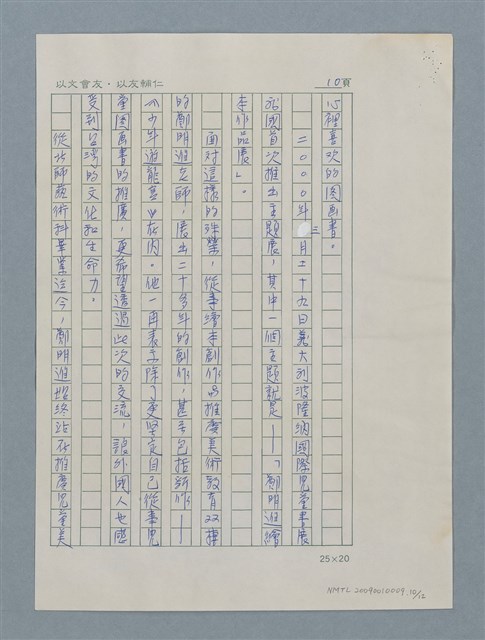 以文會友·以友輔仁
10頁
心裡喜歡的圖画書。
二〇〇〇年三月廿九日義大利波隆納國際兒童書展
首次推出主題展，其中一個主題就是——「鄭明進繪
本作品展」。
面對這樣的殊榮，從事繪本創作及推廣美術教育
的鄭明進老師，展出二十多年的創作，甚至包括新作——
《少年遊龍宮》在內。他一再表示除了更堅定自己從事兒
童圖画書的推廣，更希望透過此次的交流，讓外國人也感
受到台灣的文化和生命力。
從北師藝術科畢業迄今，鄭明進始終站在推廣兒童美
25×20
NMTL 20090010009.10/12